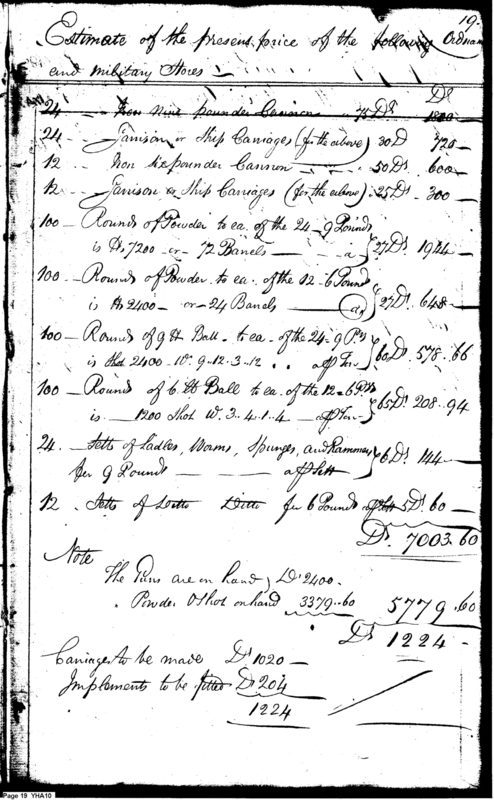 19.
Estimate of the present price of the following Ordnan
and military Stores —
Ds
24 — Iron nine pounder Cannon 75 Ds. 1800 —
24 — Garrison or Ship Carriages (for the above) 30 D 720 —
12 — Iron six pounder Cannon — 50 Ds 600 —
12 — Garison or Ship Carriages (for the above) . 25 Ds. 300 —
100 — Rounds of Powder to ea. of the 24 - 9 Pounds
is lbs 7200 — or — 72 Barrels — a } 27 Ds. 1944 —
100 — Rounds of Powder to ea. of the 12 - 6 Pounds
is lbs 2400 — or — 24 Barrels — a } 27 Ds. 648 —
100 — Rounds of 9 lb Ball - to ea. of the 24 - 9 Prs
is Shot 2400 . W. 9 - 12 . 3 . 12 . . a } 60 Ds. 578 . 66
100 — Rounds of 6 lb Ball to ea. of the 12 - 6 Prs
is — 1200 Shot W. 3 . 4 . 1 . 4 — } 65 Ds. 208 . 94
24 . — Setts of Ladles, Worms, Spunges, and Rammers
for 9 Pounds — a Sett } 6 Ds. 144 —
12 . Setts of Ditto Ditto for 6 Pounds 5 Ds 60 —
Ds. 7003.60
Note
The Guns are on hand } Ds. 2400 .
Powder & Shot on hand 3379..60 5779.60
Ds 1224 —
Carriages to be made Ds 1020 —
Implements to be fitted Ds 204
1224
Page 19 YHA10